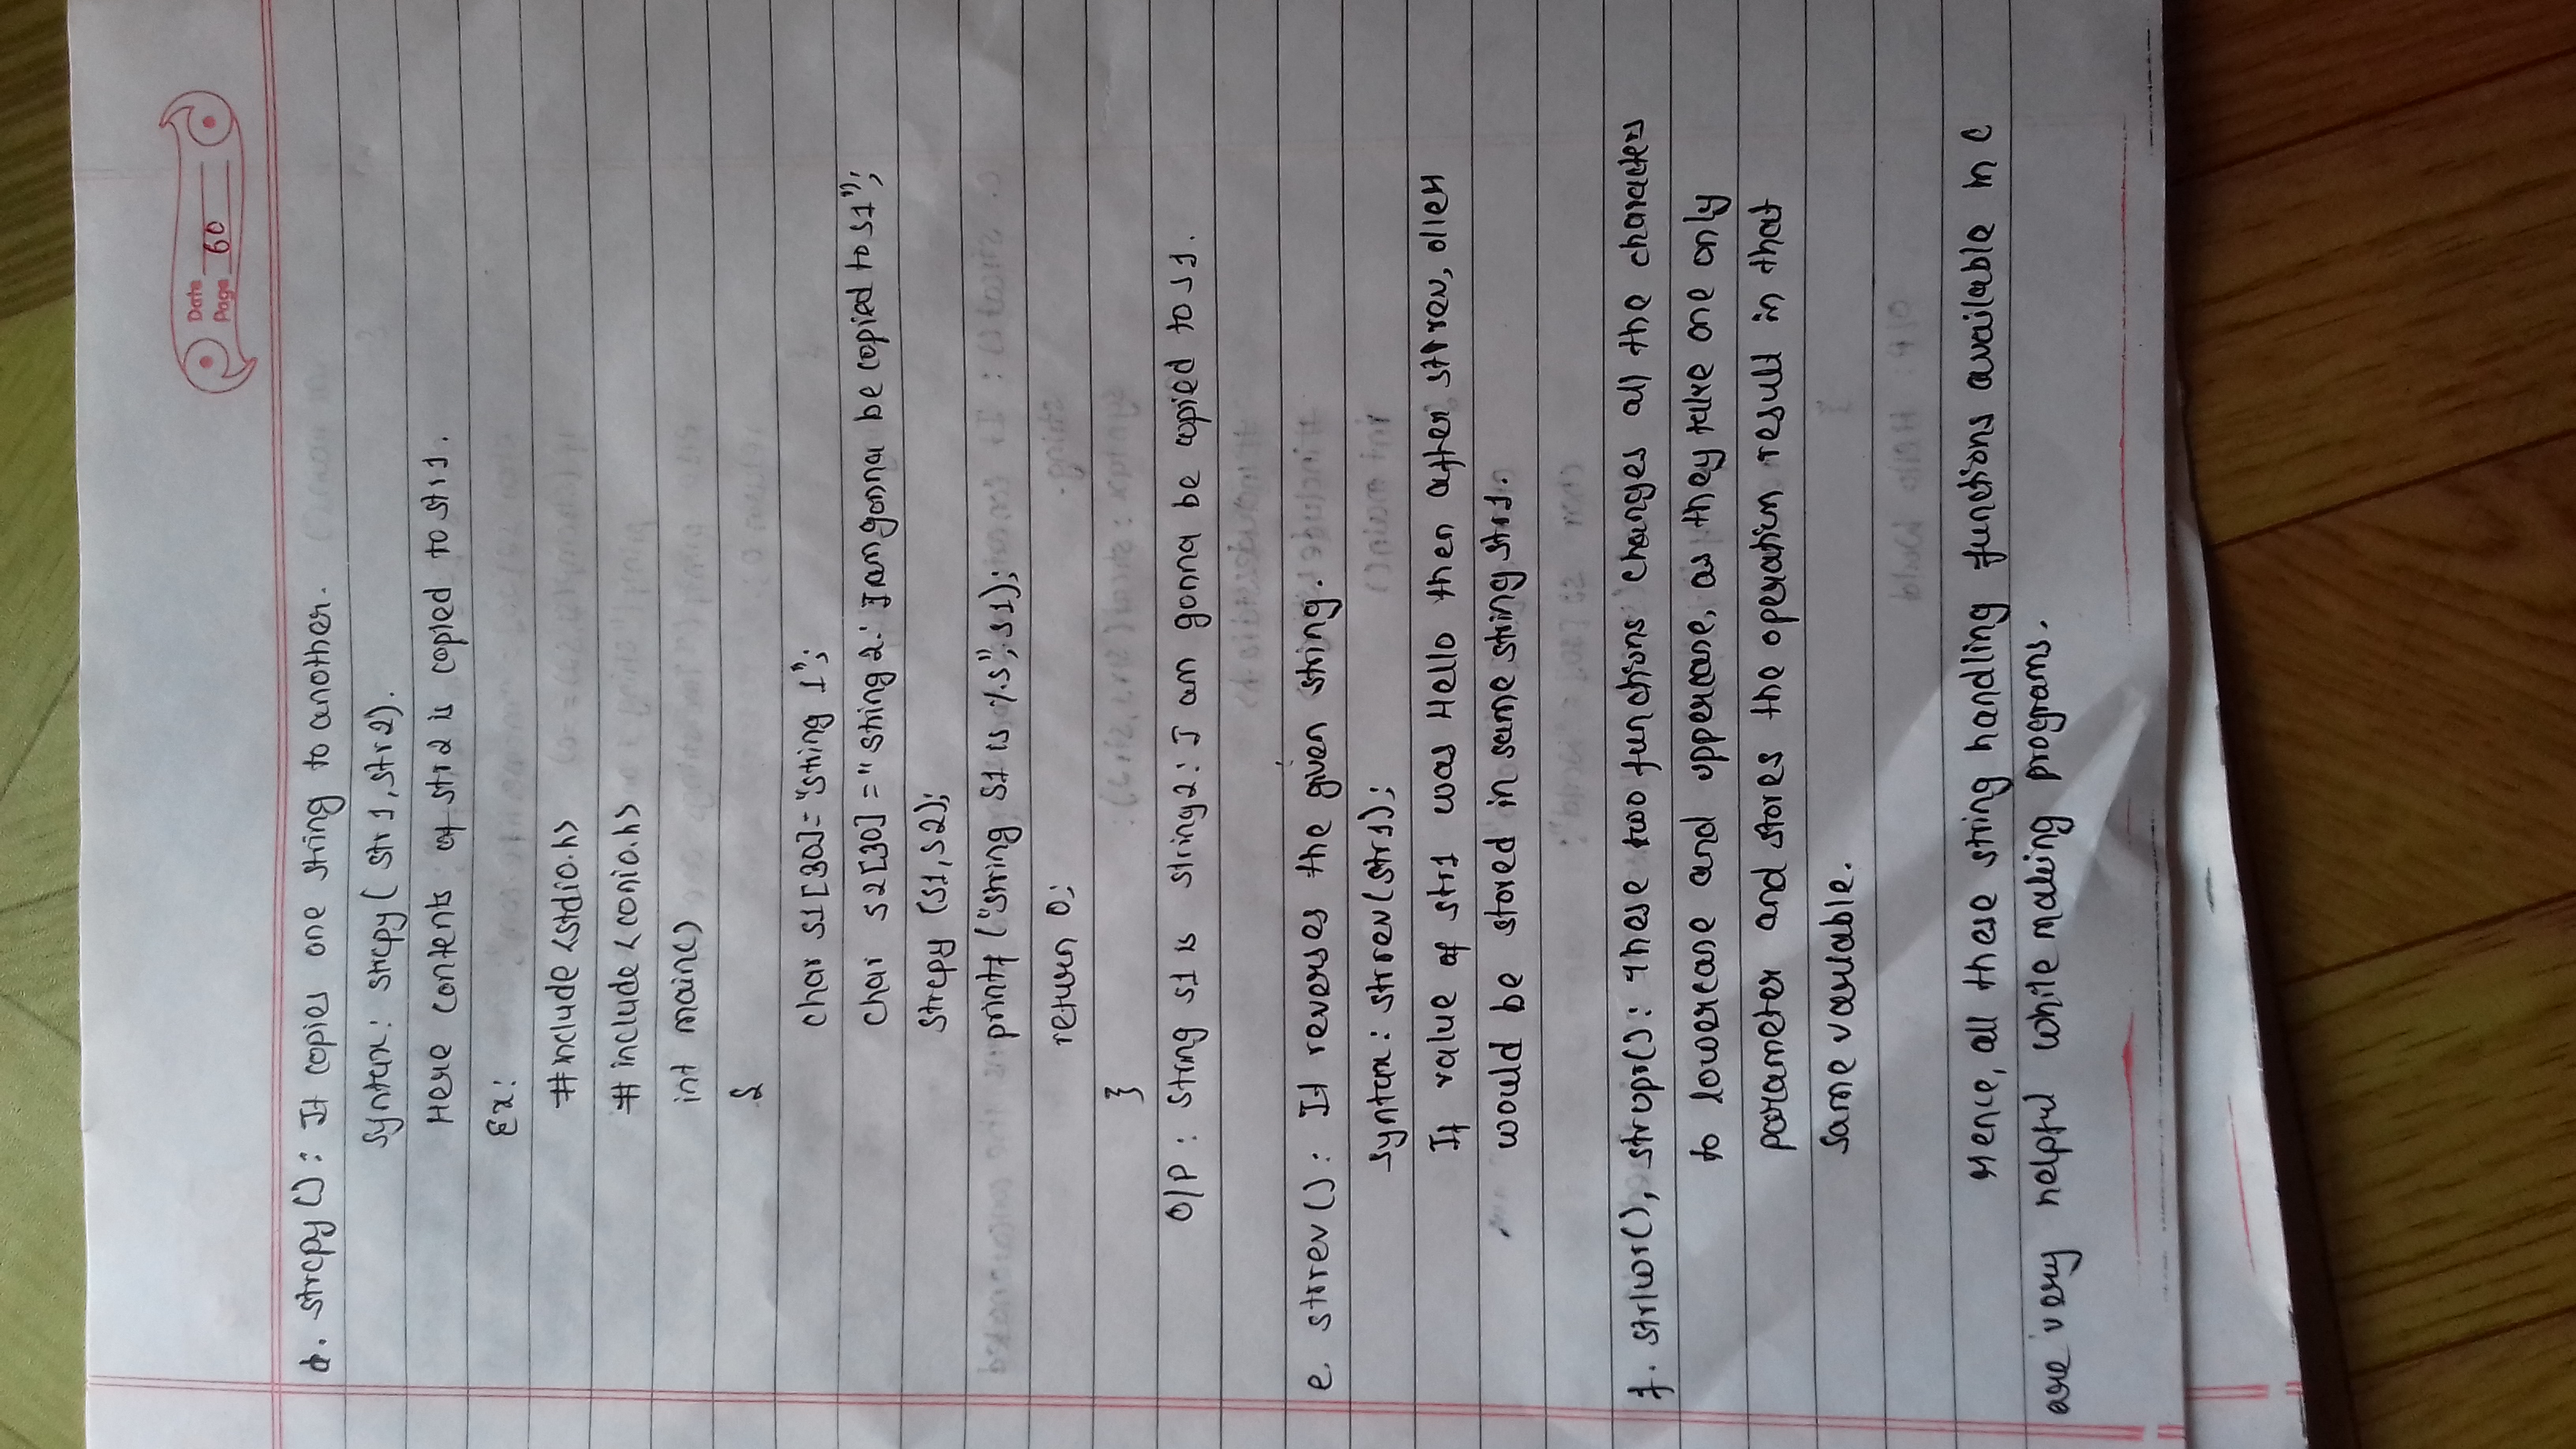 Date
Page 60
d. strcpy(): It copies one string to another.
Syntax: strcpy( str1, str2).
Here contents of str2 is copied to str1.
Ex:
#include <stdio.h>
# include <conio.h>
int main()
{
char s1[30]= "string 1";
char s2[30] = "string 2: I am gonna be copied to s1";
strcpy (s1, s2);
printf ("string S1 is %s", s1);
return 0;
}
O/P : String s1 is string2: I am gonna be copied to s1.
e. strrev(): It reverses the given string.
Syntax: strrev(str1);
If value of str1 was Hello then after strrev, olleH
would be stored in same string str1.
f. strlwr(), strupr(): These two functions changes all the characters
to lowercase and uppercase, as they take one only
parameter and stores the operation result in that
same variable.
Hence, all these string handling functions available in C
are very helpful while making programs.